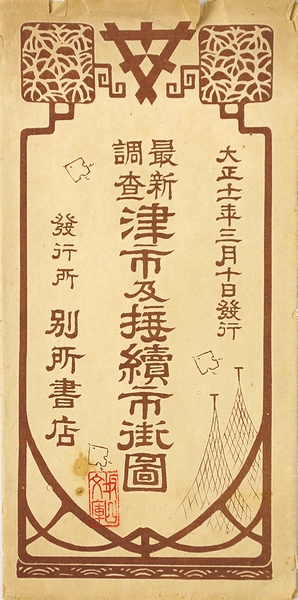 大正十一年三月十日發行
最新
調査
津市及接續市街圖
發行所 別所書店